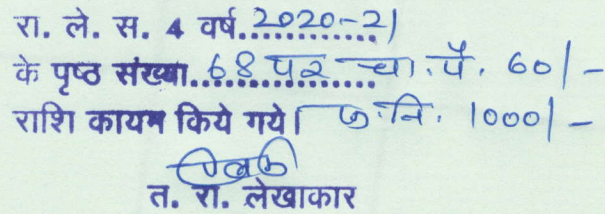 रा. ले. स. 4 वर्ष 2020-21
के पृष्ठ संख्या 68 पर चा. पै. 60/-
राशि कायम किये गये। ज. नि. 1000/-
त. रा. लेखाकार